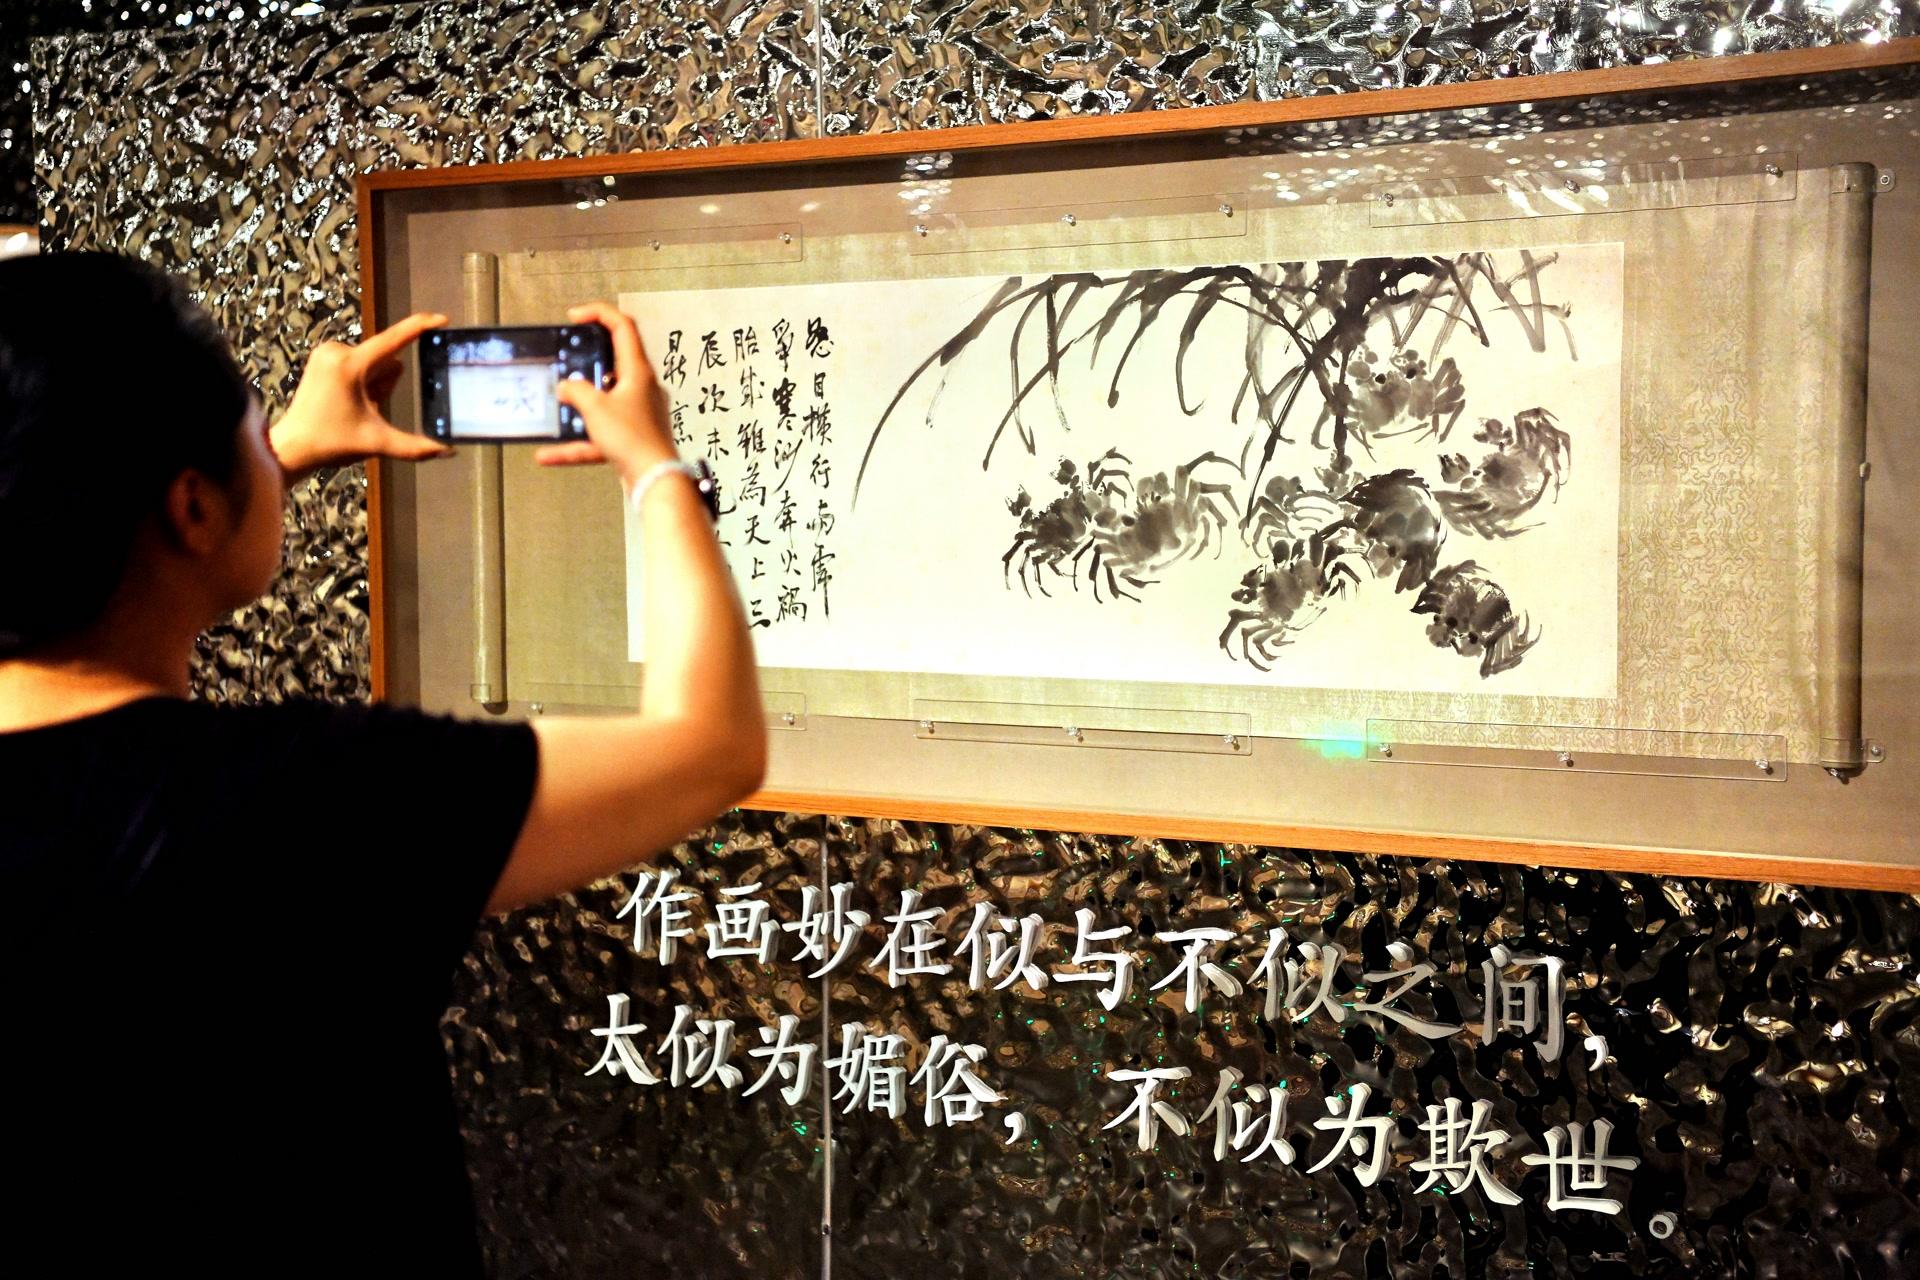 怒目横行與虎
爭寒沙奔火禍
胎成雖為天上三
辰次未免
鼎烹
作画妙在似与不似之间，
太似为媚俗，不似为欺世。